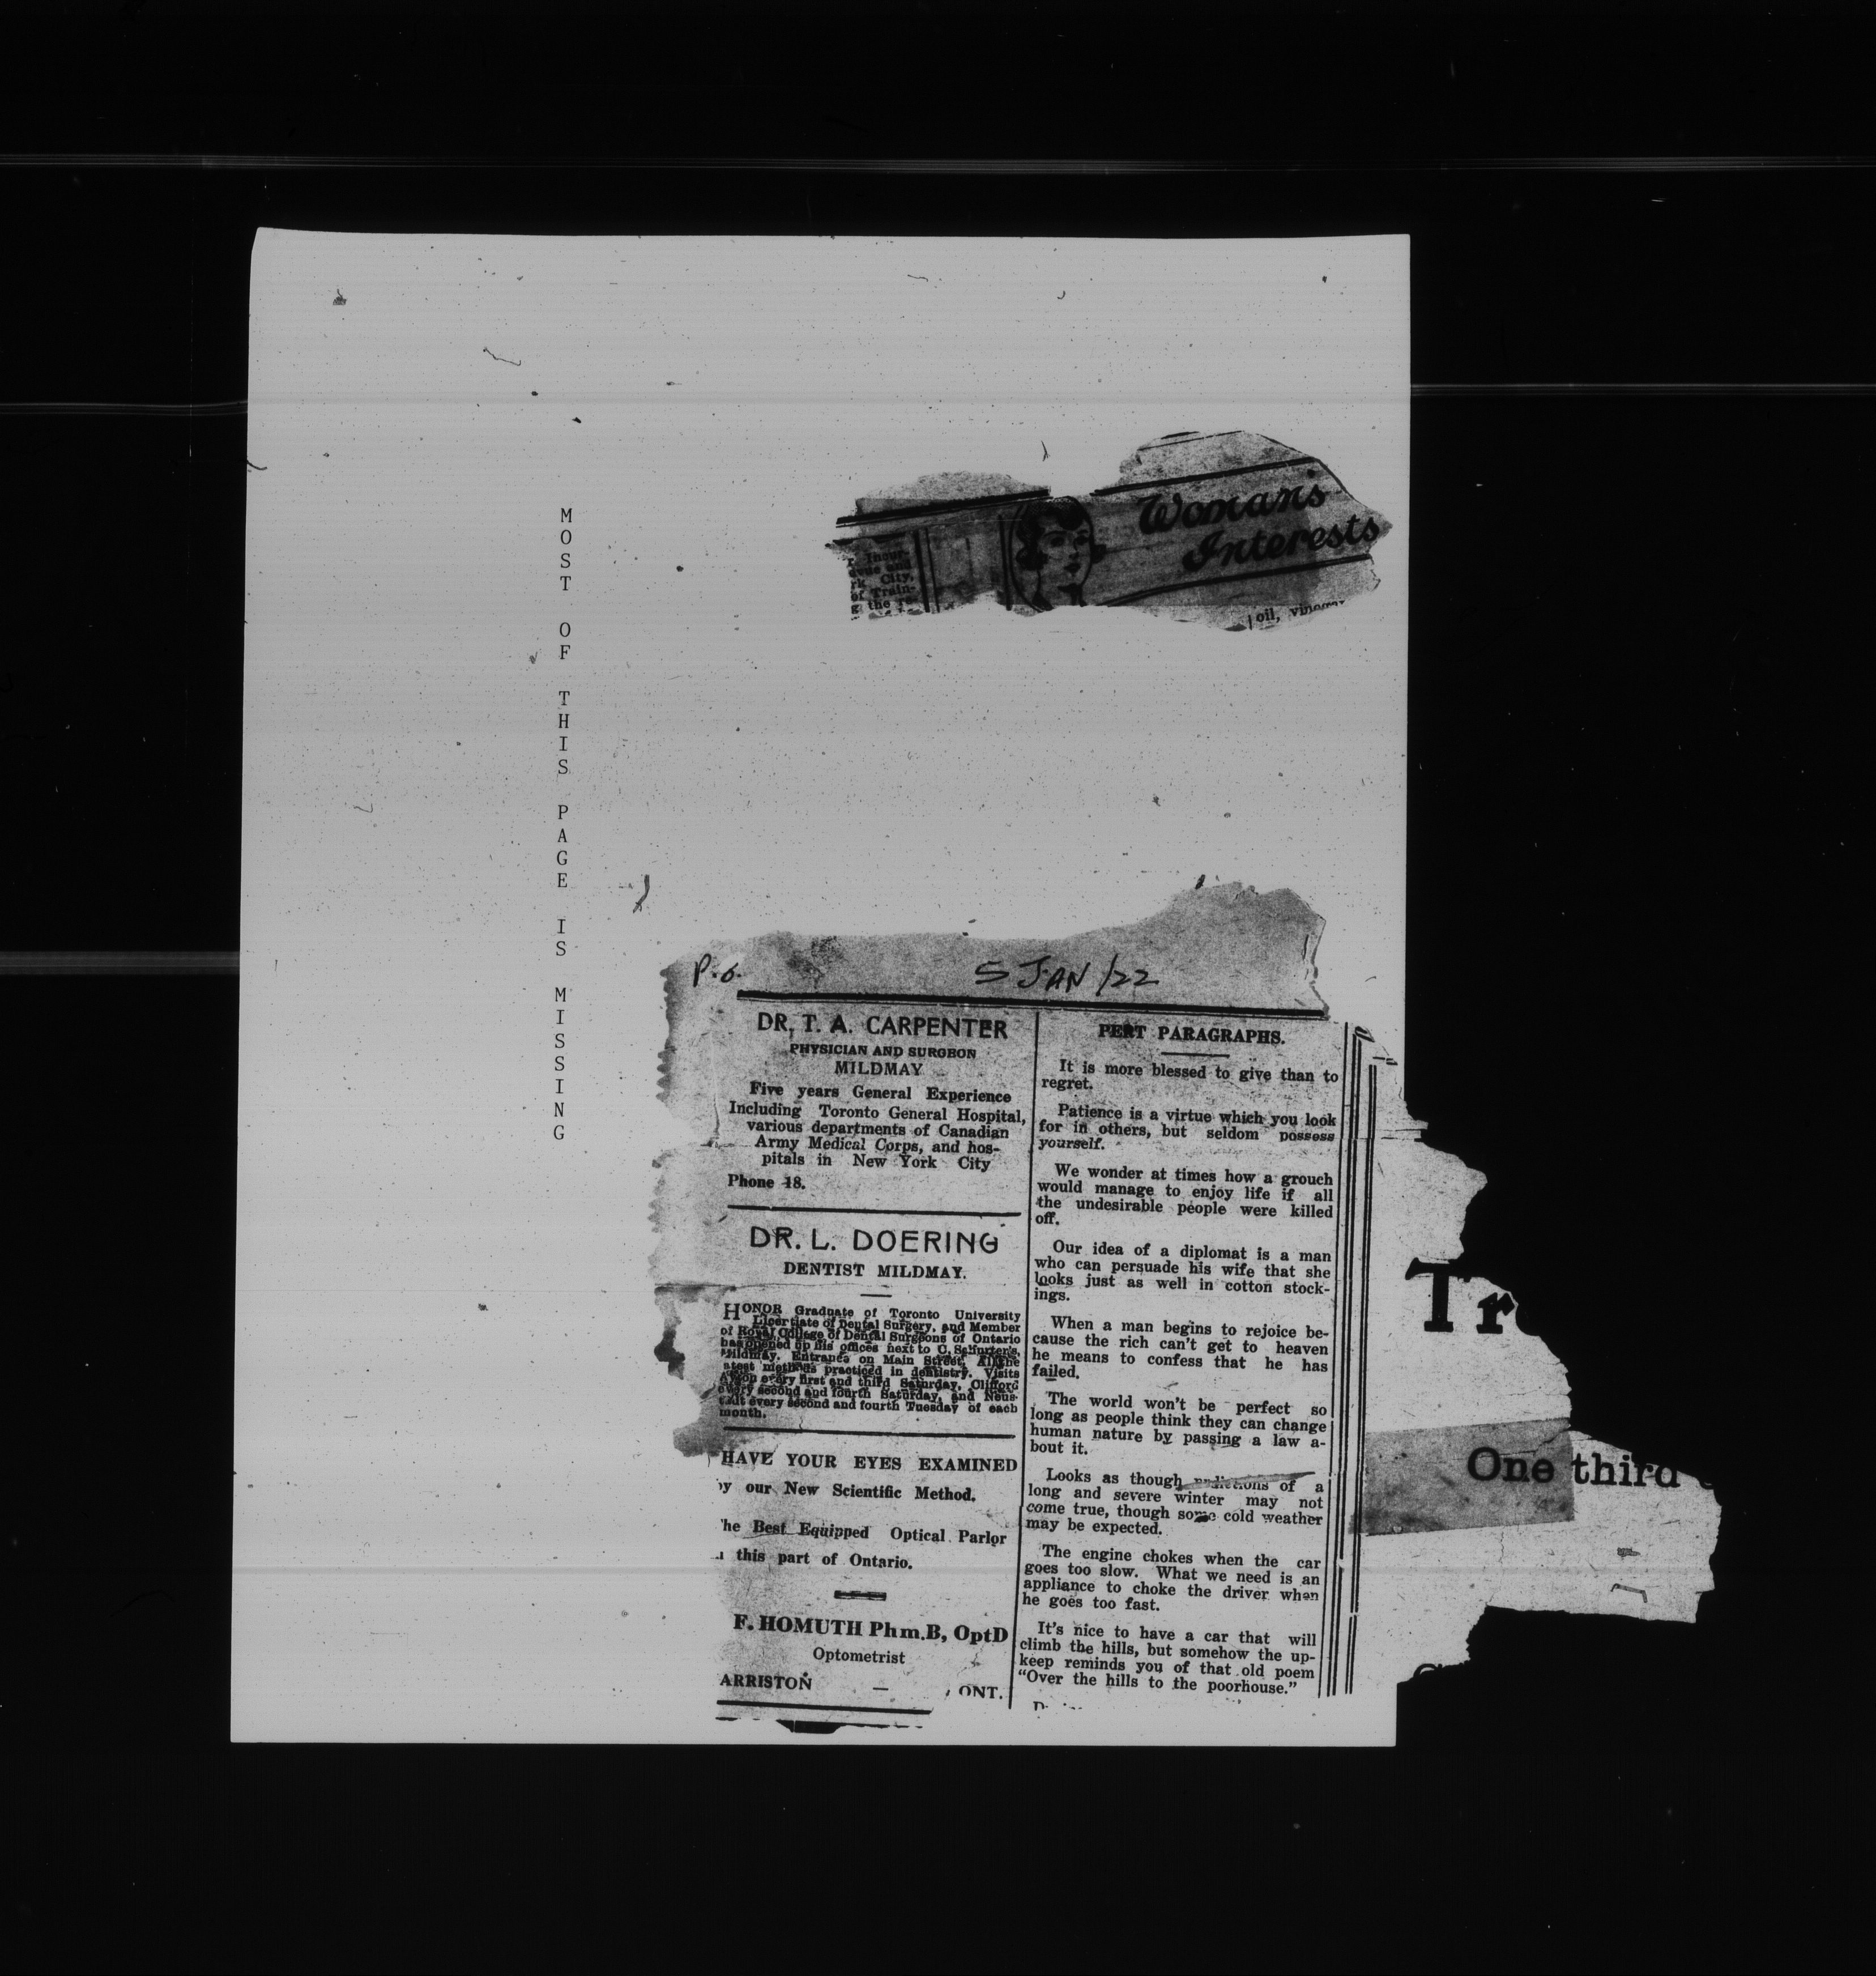 MOST OF THIS PAGE IS MISSING
Woman's
Interests
Incur-
and
rk City,
of Train-
g the re-
oil,
P. 6.
5 JAN/22
DR. T. A. CARPENTER
PHYSICIAN AND SURGEON
MILDMAY
Five years General Experience
Including Toronto General Hospital,
various departments of Canadian
Army Medical Corps, and hos-
pitals in New York City
Phone 18.
DR. L. DOERING
DENTIST MILDMAY.
HONOR Graduate of Toronto University
Licentiate of Dental Surgery, and Member
of Royal College of Dental Surgeons of Ontario
has opened up his offices next to C. Schurter's,
Mildmay. Entrance on Main Street. All the
atest methods practiced in dentistry. Visits
Ayton every first and third Saturday, Clifford
every second and fourth Saturday, and Neus-
tadt every second and fourth Tuesday of each
month.
HAVE YOUR EYES EXAMINED
y our New Scientific Method.
he Best Equipped Optical Parlor
this part of Ontario.
F. HOMUTH Phm.B, OptD
Optometrist
ARRISTON — ONT.
PERT PARAGRAPHS.
It is more blessed to give than to
regret.
Patience is a virtue which you look
for in others, but seldom possess
yourself.
We wonder at times how a grouch
would manage to enjoy life if all
the undesirable people were killed
off.
Our idea of a diplomat is a man
who can persuade his wife that she
looks just as well in cotton stock-
ings.
When a man begins to rejoice be-
cause the rich can't get to heaven
he means to confess that he has
failed.
The world won't be perfect so
long as people think they can change
human nature by passing a law a-
bout it.
Looks as though of a
long and severe winter may not
come true, though some cold weather
may be expected.
The engine chokes when the car
goes too slow. What we need is an
appliance to choke the driver when
he goes too fast.
It's nice to have a car that will
climb the hills, but somehow the up-
keep reminds you of that old poem
"Over the hills to the poorhouse."
Tr
One third